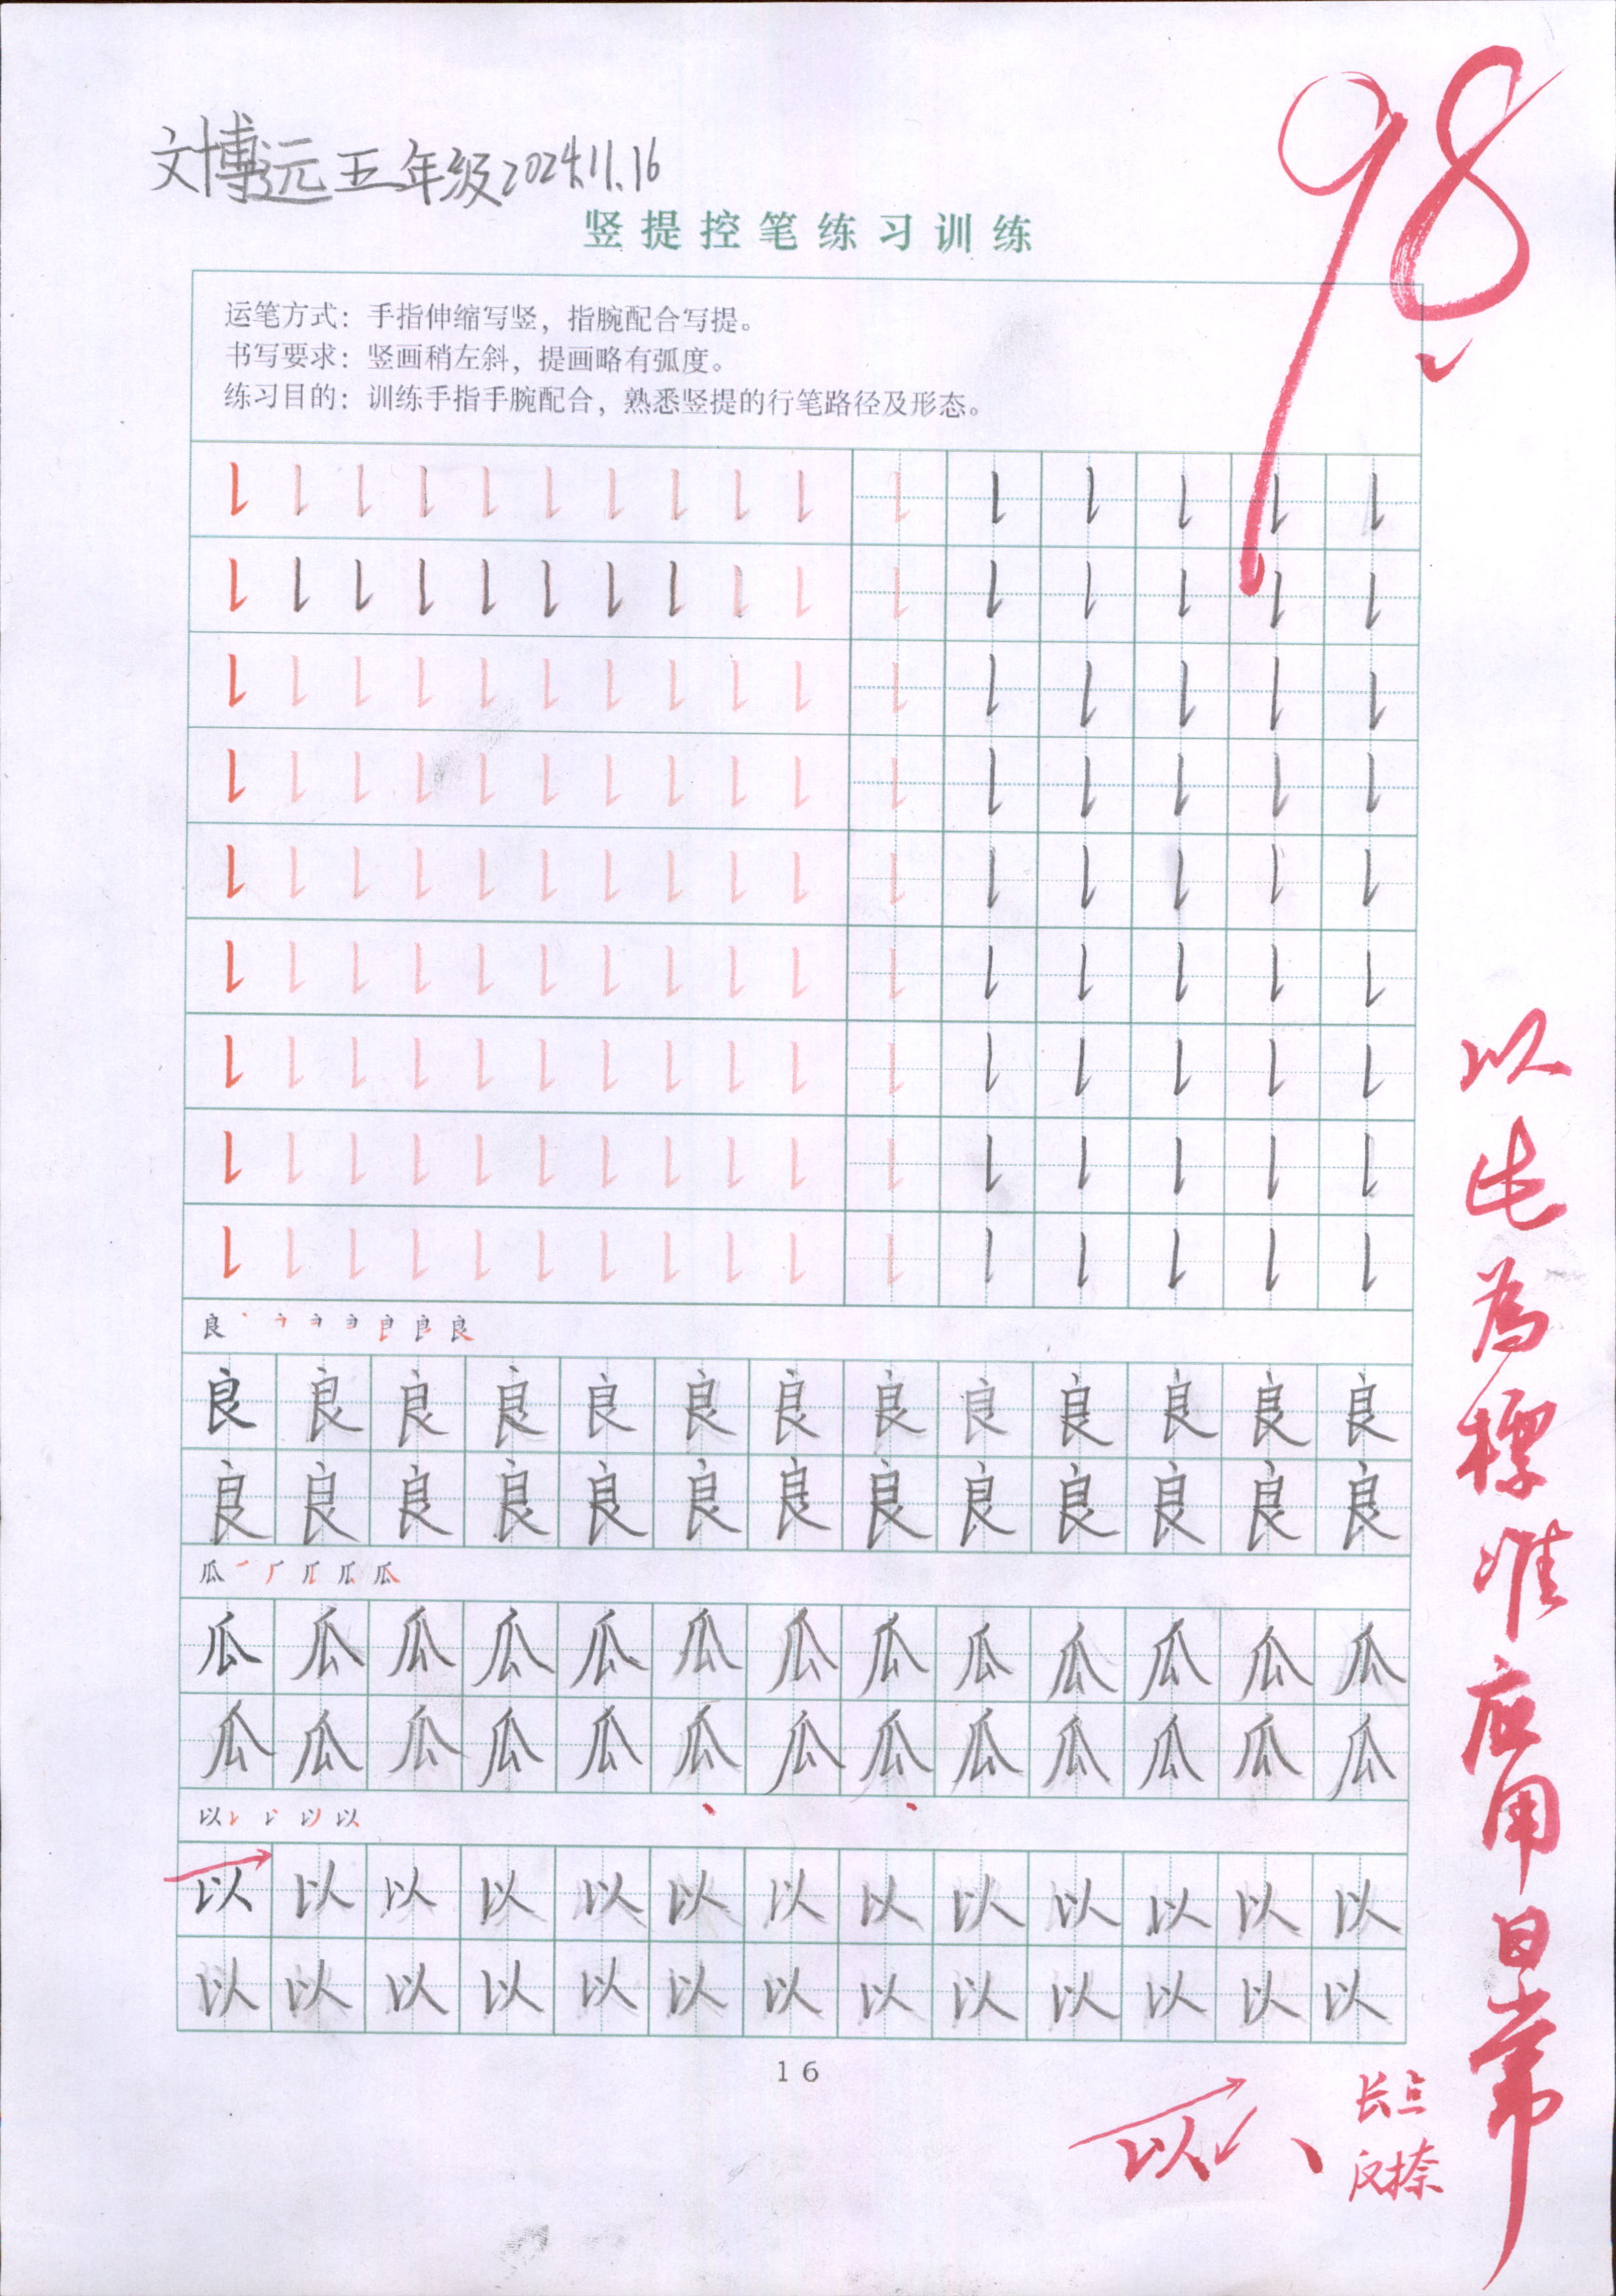 文博远五年级2024.11.16
98
竖提控笔练习训练
运笔方式：手指伸缩写竖，指腕配合写提。
书写要求：竖画稍左斜，提画略有弧度。
练习目的：训练手指手腕配合，熟悉竖提的行笔路径及形态。
良 良
良良良良良良良良良良良良良
良良良良良良良良良良良良良
瓜 瓜
瓜瓜瓜瓜瓜瓜瓜瓜瓜瓜瓜瓜瓜
瓜瓜瓜瓜瓜瓜瓜瓜瓜瓜瓜瓜瓜
以 以
以以以以以以以以以以以以以
以以以以以以以以以以以以以
16
以此為標准应用日常
以
长点
反捺